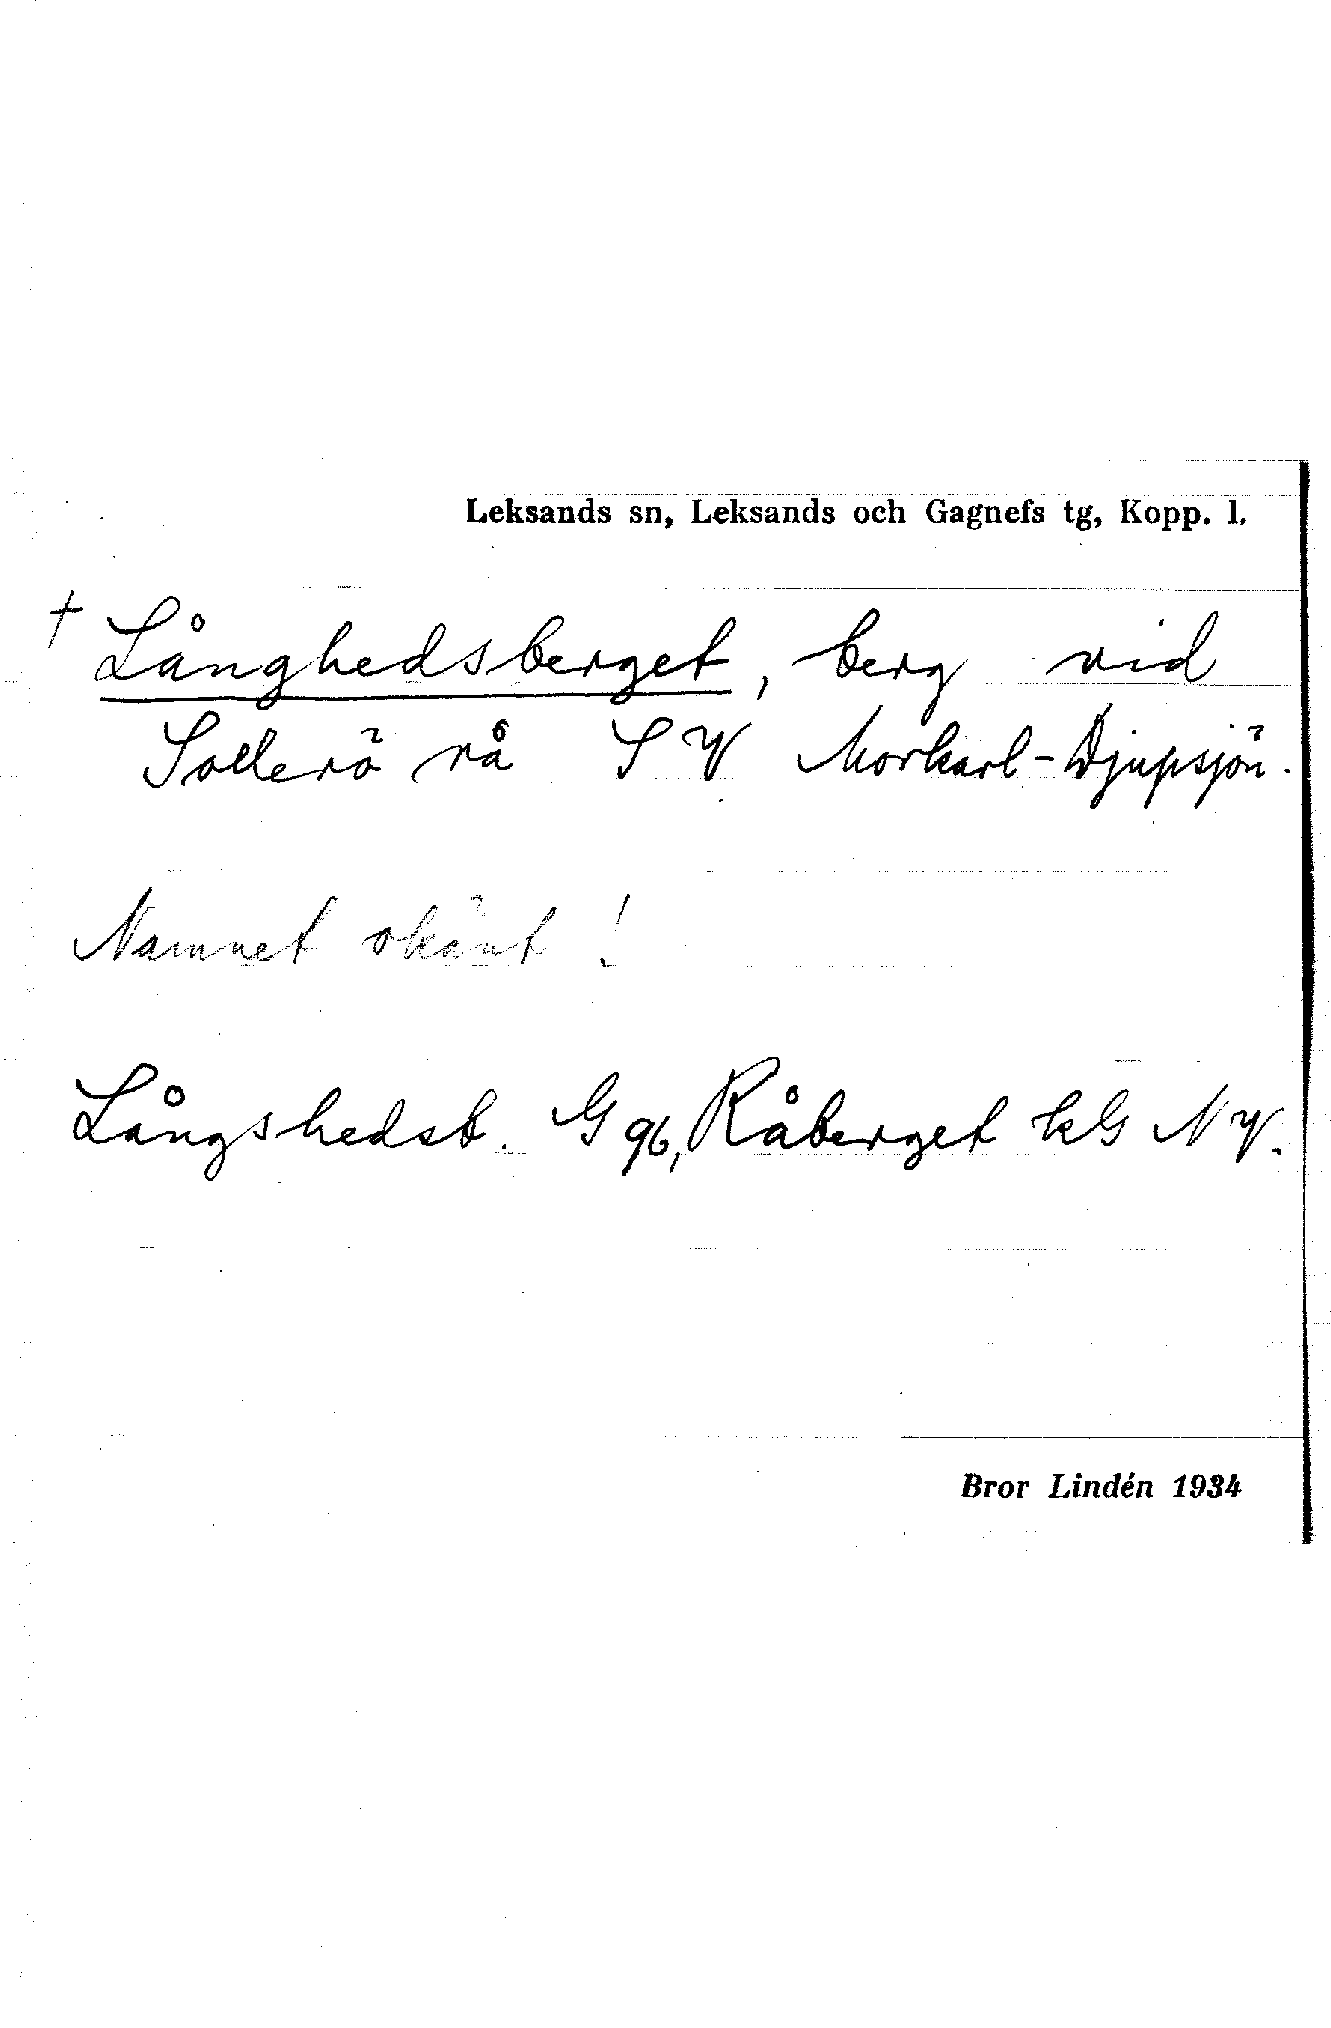 Leksands sn, Leksands och Gagnefs tg, Kopp. l.
† Långhedsberget, berg vid
Sollerö rå SV Morkarl-Djupsjön.
Namnet okänt!
Långshedsb. G 96, Råberget kG NV.
Bror Lindén 1934